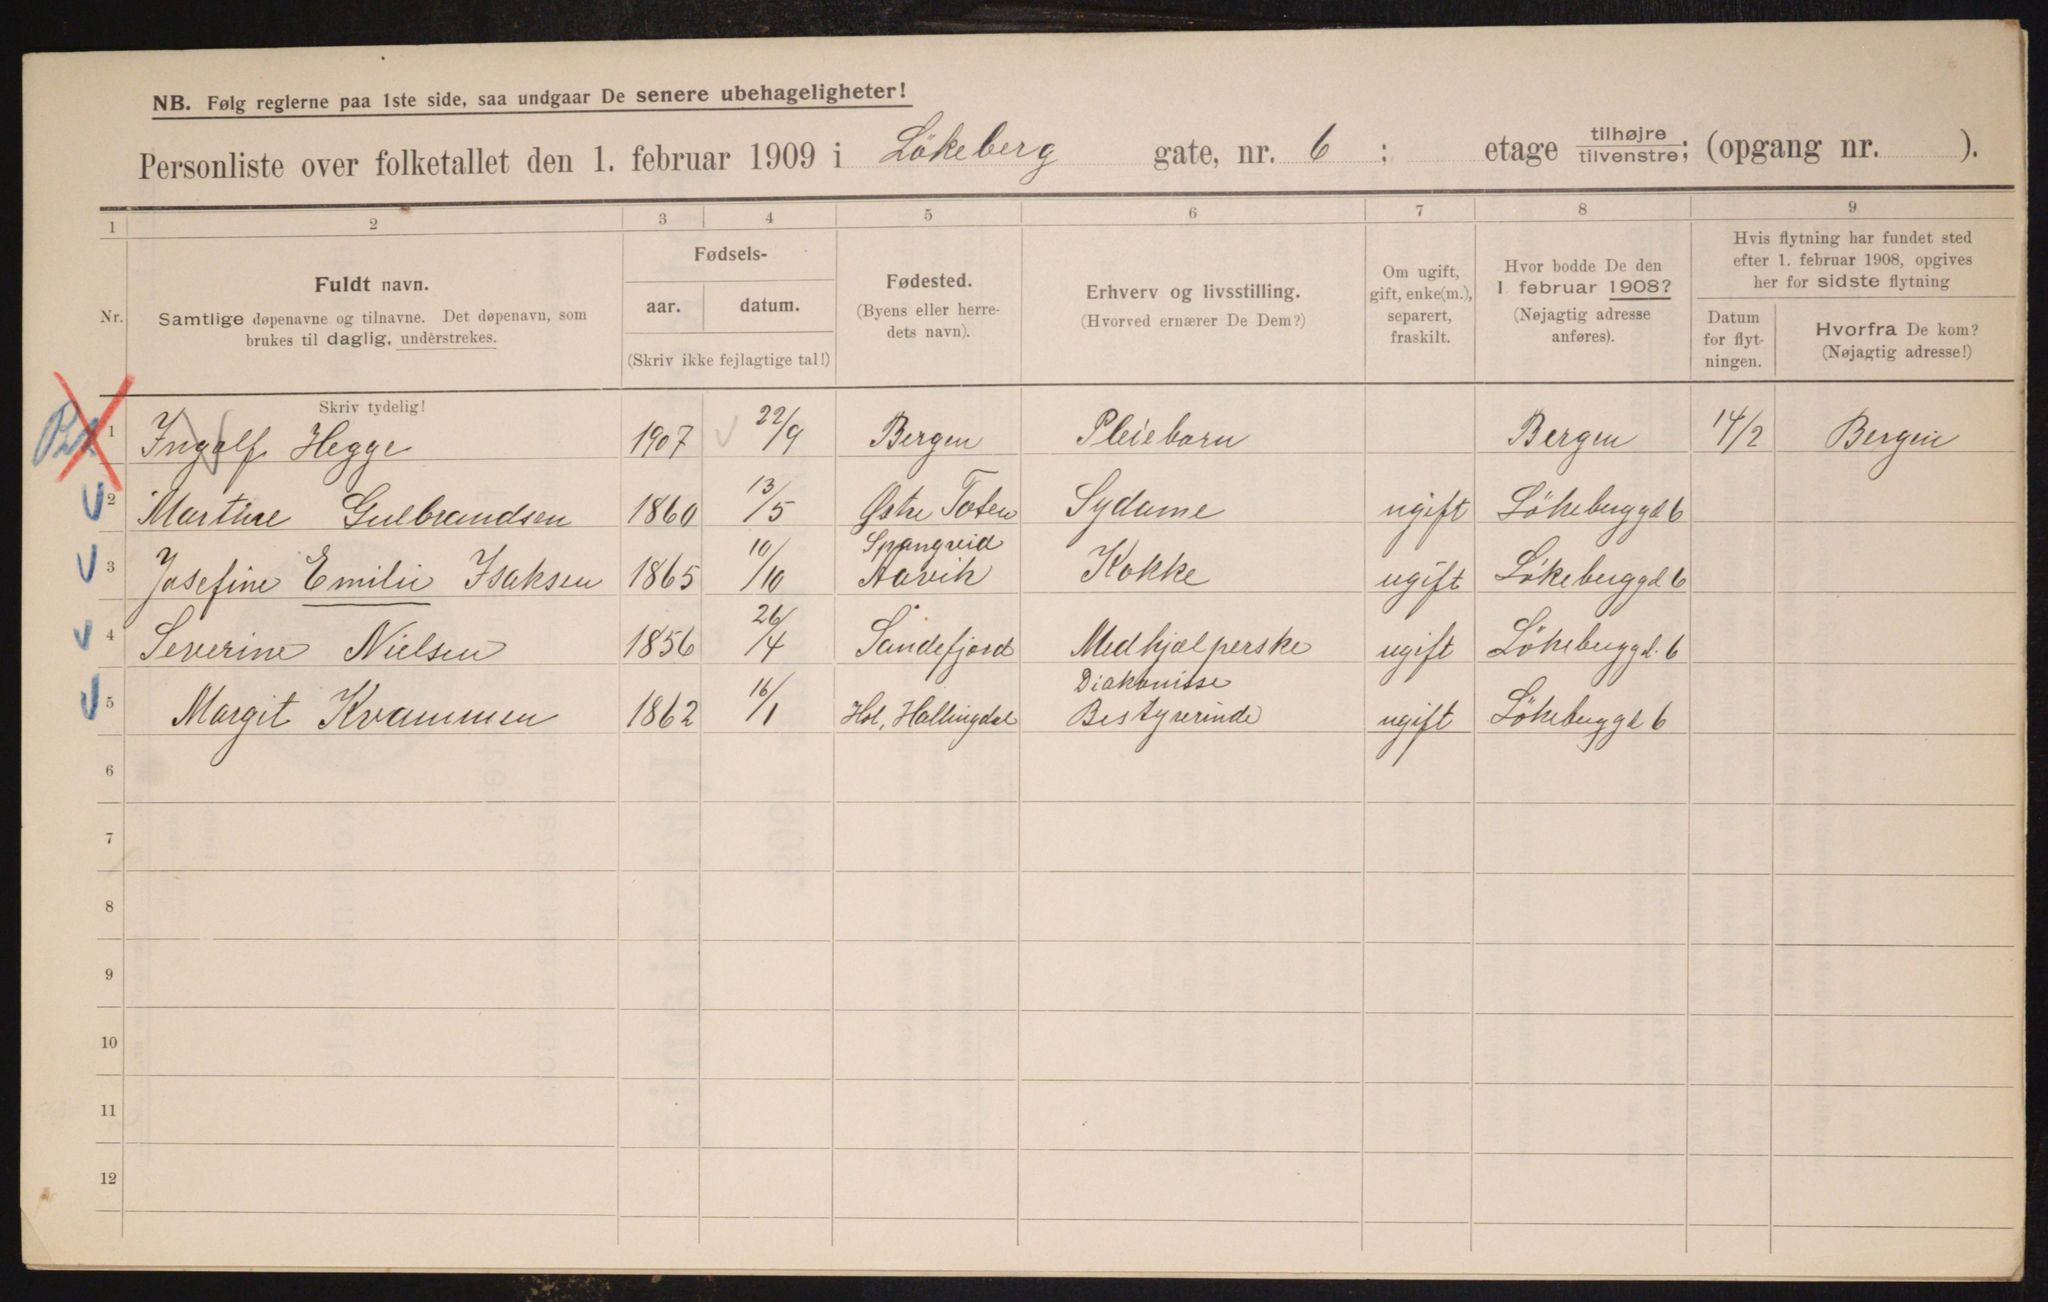 NB. Følg reglerne paa 1ste side, saa undgaar De senere ubehageligheter!
Personliste over folketallet den 1. februar 1909 i Lökeberg gate, nr. 6 ; etage tilhøjre/tilvenstre; (opgang nr. ).
1 2 3 4 5 6 7 8 9
Nr.
Fuldt navn.
Samtlige døpenavne og tilnavne. Det døpenavn, som
brukes til daglig, understrekes.
Skriv tydelig!
Fødsels-
aar. datum.
(Skriv ikke fejlagtige tal!)
Fødested.
(Byens eller herre-
dets navn).
Erhverv og livsstilling.
(Hvorved ernærer De Dem?)
Om ugift,
gift, enke(m.),
separert,
fraskilt.
Hvor bodde De den
1. februar 1908?
(Nøjagtig adresse
anføres).
Hvis flytning har fundet sted
efter 1. februar 1908, opgives
her for sidste flytning
Datum
for flyt-
ningen.
Hvorfra De kom?
(Nøjagtig adresse!)
1 Ingolf Hegge 1907 22/9 Bergen Pleiebarn Bergen 14/2 Bergen
2 Marthe Gulbrandsen 1860 13/5 Østre Toten Sydame ugift Lökeberggd 6
3 Josefine Emilie Isaksen 1865 10/10 Spangveid Aavik Kokke ugift Lökeberggd 6
4 Severine Nielsen 1856 26/4 Sandefjord Medhjælperske ugift Lökeberggd. 6
5 Margit Kvammen 1862 16/1 Hol, Hallingdal Diakonisse Bestyrerinde ugift Lökeberggd 6
6
7
8
9
10
11
12